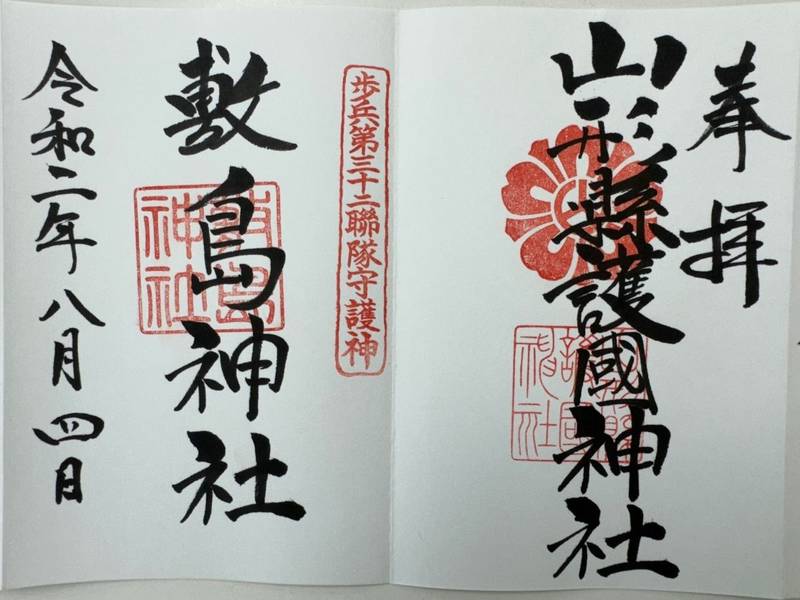 奉拝
山形縣護國神社
歩兵第三十二聯隊守護神
敷島神社
敷島神社
令和二年八月四日